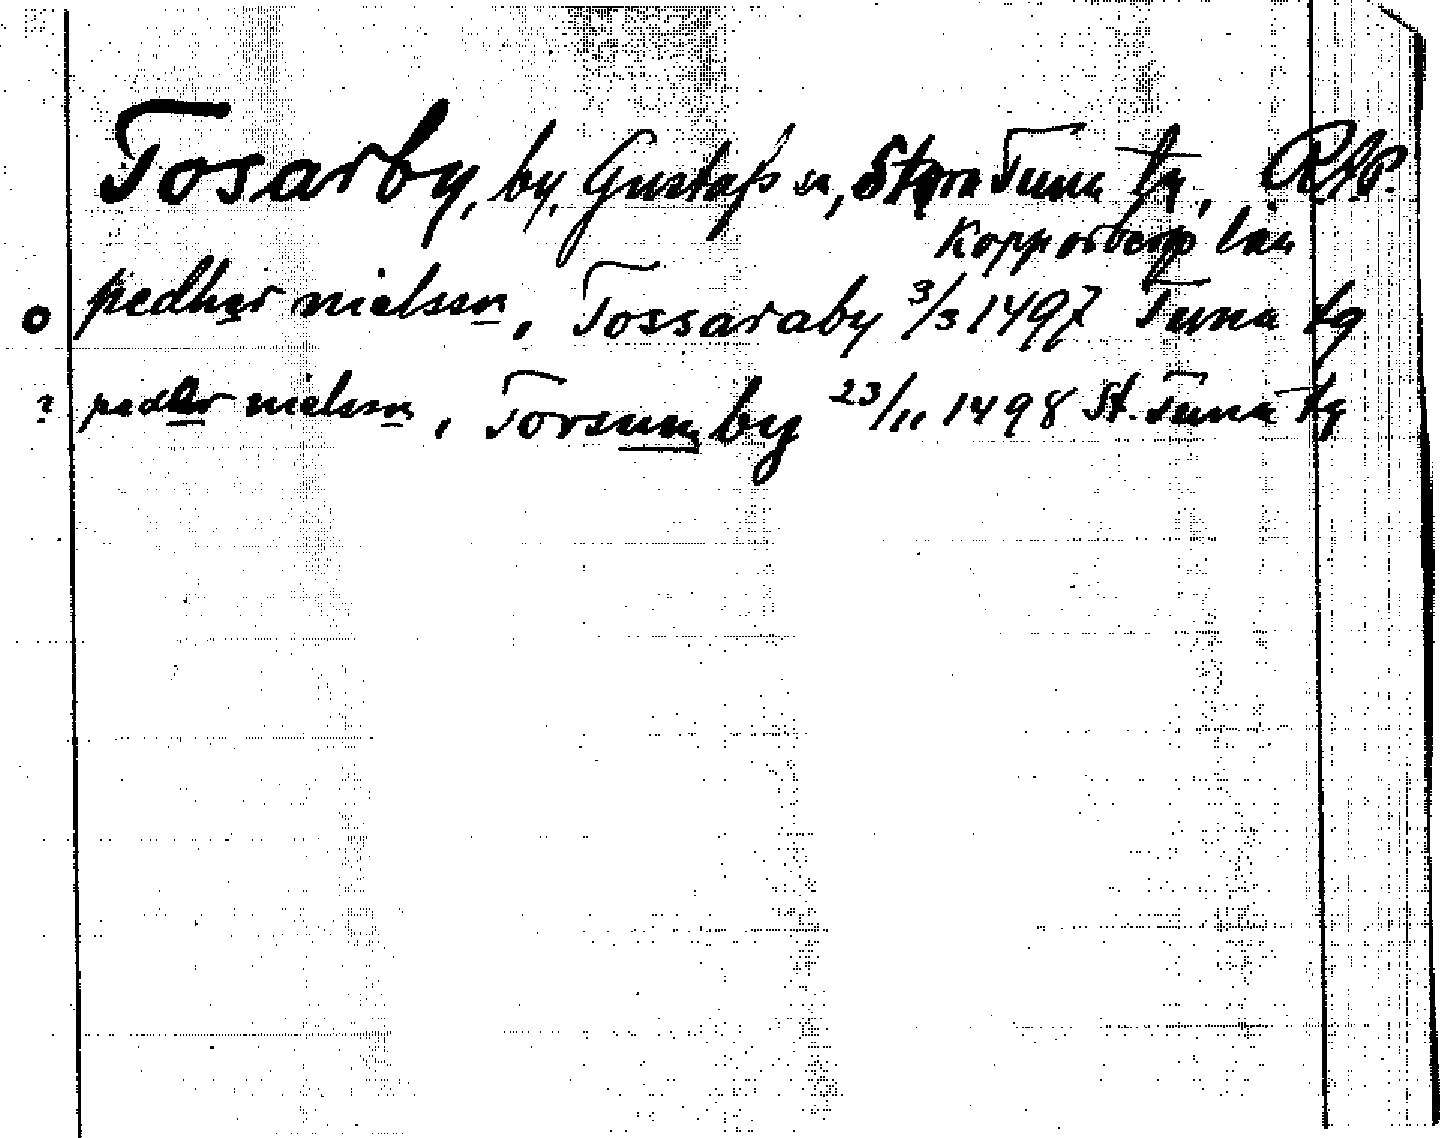 Tosarby, by, Gustafs sn, Stora Tuna tg, RAP.
Kopparbergs län
o pedher nielsson, Tossaraby 3/3 1497 Tuna tg
? pedher nielsson, Torsumby 23/11 1498 St. Tuna tg